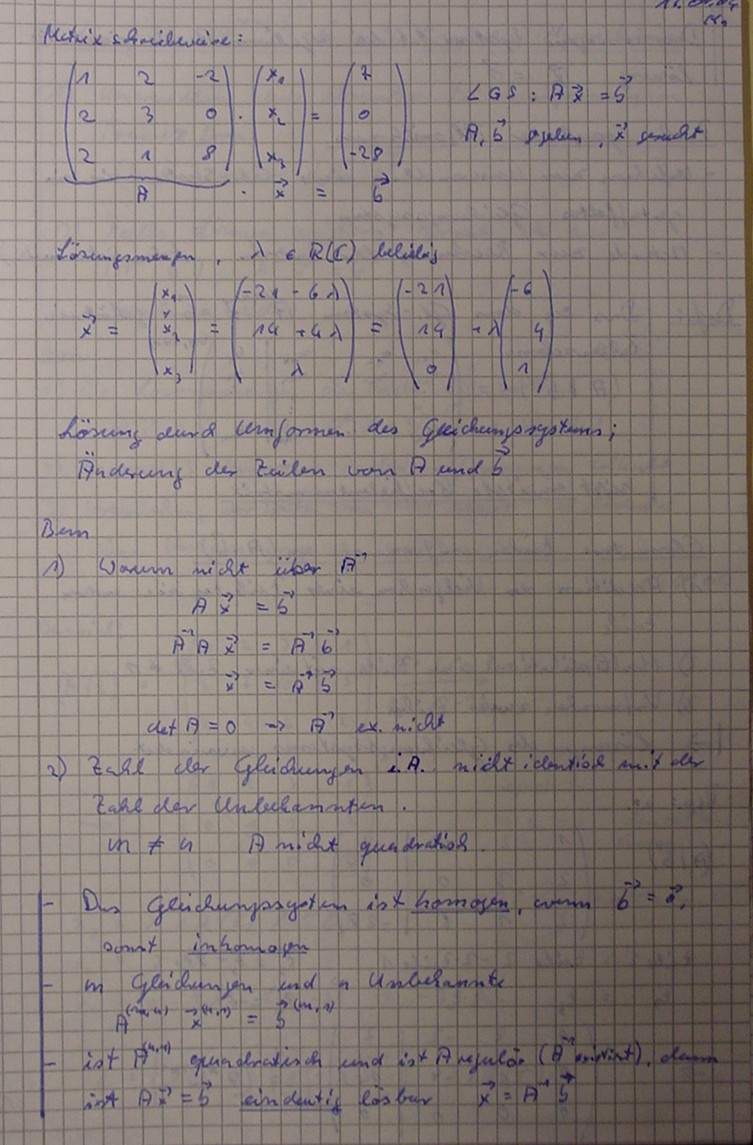 Matrixschreibweise:
( 1 2 -2 ) ( x₁ ) ( 7 )
( 2 3 0 ) · ( x₂ ) = ( 0 )
( 2 1 8 ) ( x₃ ) ( -28 )
A · x⃗ = b⃗
LGS : A x⃗ = b⃗
A, b⃗ gegeben, x⃗ gesucht
Lösungsmengen, λ ∈ R(C) beliebig
x⃗ = ( x₁ x₂ x₃ ) = ( -21 - 6λ 14 + 4λ λ ) = ( -21 14 0 ) + λ ( -6 4 1 )
Lösung durch Umformen des Gleichungssystems;
Änderung der Zeilen von A und b⃗
Bem
1) Warum nicht über A⁻¹
A x⃗ = b⃗
A⁻¹ A x⃗ = A⁻¹ b⃗
x⃗ = A⁻¹ b⃗
det A = 0 → A⁻¹ ex. nicht
2) Zahl der Gleichungen i.A. nicht identisch mit der
Zahl der Unbekannten.
m ≠ n A nicht quadratisch.
- Das Gleichungssystem ist homogen, wenn b⃗ = o⃗,
sonst inhomogen
- m Gleichungen und n Unbekannte
A⁽ᵐ,ⁿ⁾ x⃗⁽ⁿ,¹⁾ = b⃗⁽ᵐ,¹⁾
- ist A⁽ⁿ,ⁿ⁾ quadratisch und ist A regulär (A⁻¹ existiert), dann
ist A x⃗ = b⃗ eindeutig lösbar x⃗ = A⁻¹ b⃗